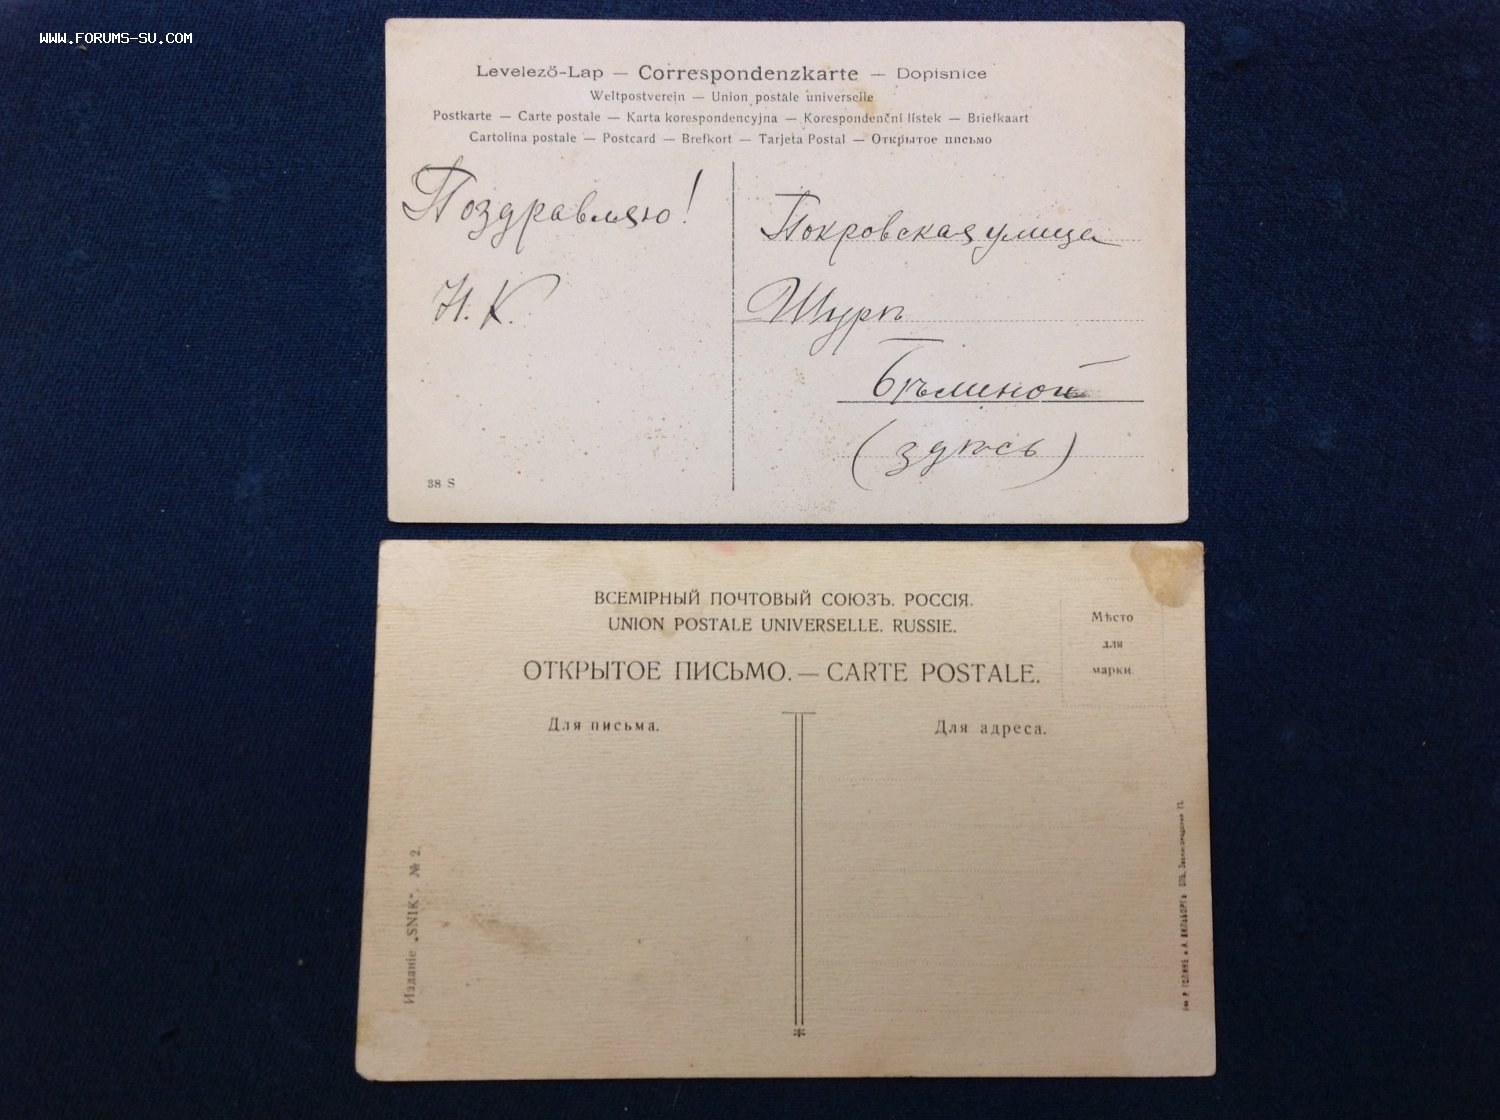 WWW.FORUMS-SU.COM
Levelező-Lap — Correspondenzkarte — Dopisnice
Weltpostverein — Union postale universelle
Postkarte — Carte postale — Karta korespondencyjna — Korespondenční lístek — Briefkaart
Cartolina postale — Postcard — Brefkort — Tarjeta Postal — Открытое письмо
Поздравляю!
Н. К.
Покровская улица
Шурѣ
Бѣлиной
(здѣсь)
38 S
ВСЕМІРНЫЙ ПОЧТОВЫЙ СОЮЗЪ. РОССІЯ.
UNION POSTALE UNIVERSELLE. RUSSIE.
ОТКРЫТОЕ ПИСЬМО. — CARTE POSTALE.
Мѣсто
для
марки.
Для письма.
Для адреса.
Изданіе „SNIK“. № 2.
Р. ГОЛИКЕ и А. ВИЛЬБОРГЪ СПБ. Звенигородская 11.